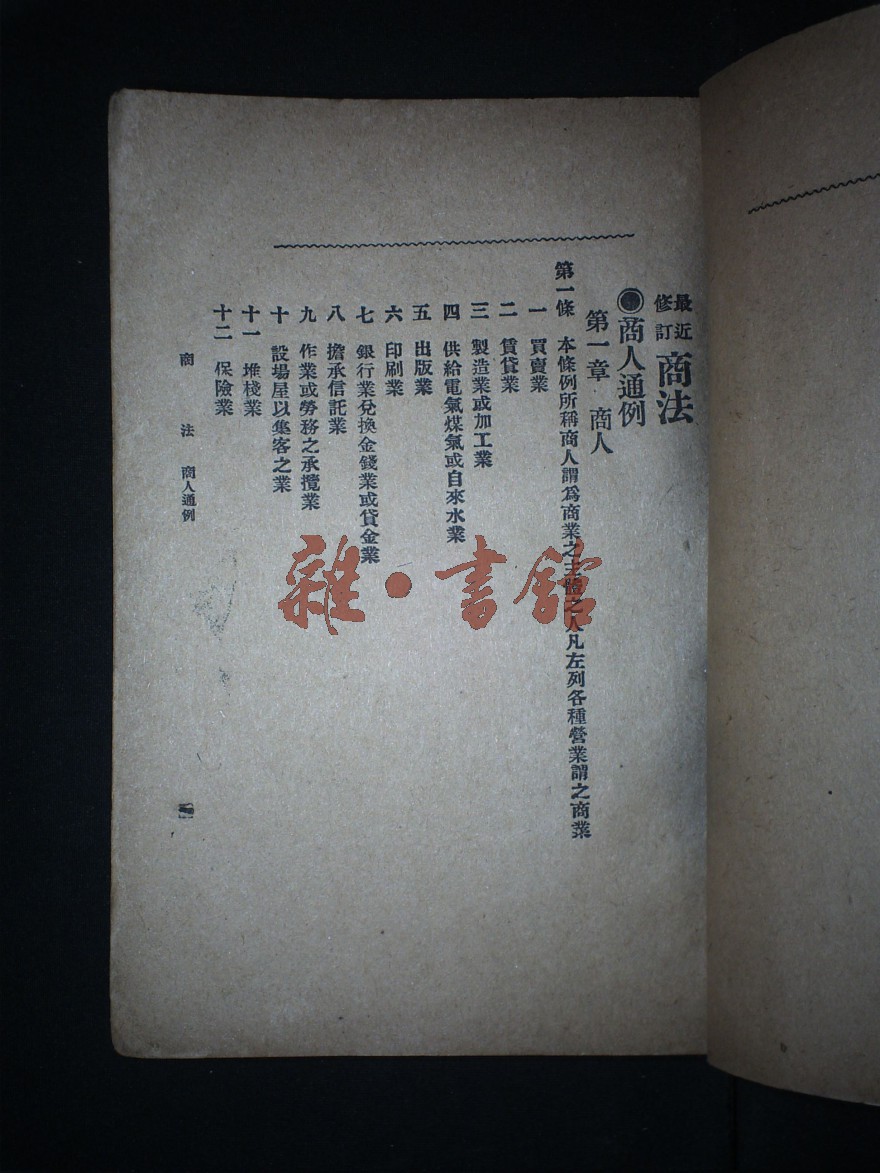 最近修訂 商法
商人通例
第一章 商人
第一條 本條例所稱商人謂爲商業之主體之人凡左列各種營業謂之商業
一 買賣業
二 賃貸業
三 製造業或加工業
四 供給電氣煤氣或自來水業
五 出版業
六 印刷業
七 銀行業兌換金錢業或貸金業
八 擔承信託業
九 作業或勞務之承攬業
十 設場屋以集客之業
十一 堆棧業
十二 保險業
商法 商人通例
雜・書館